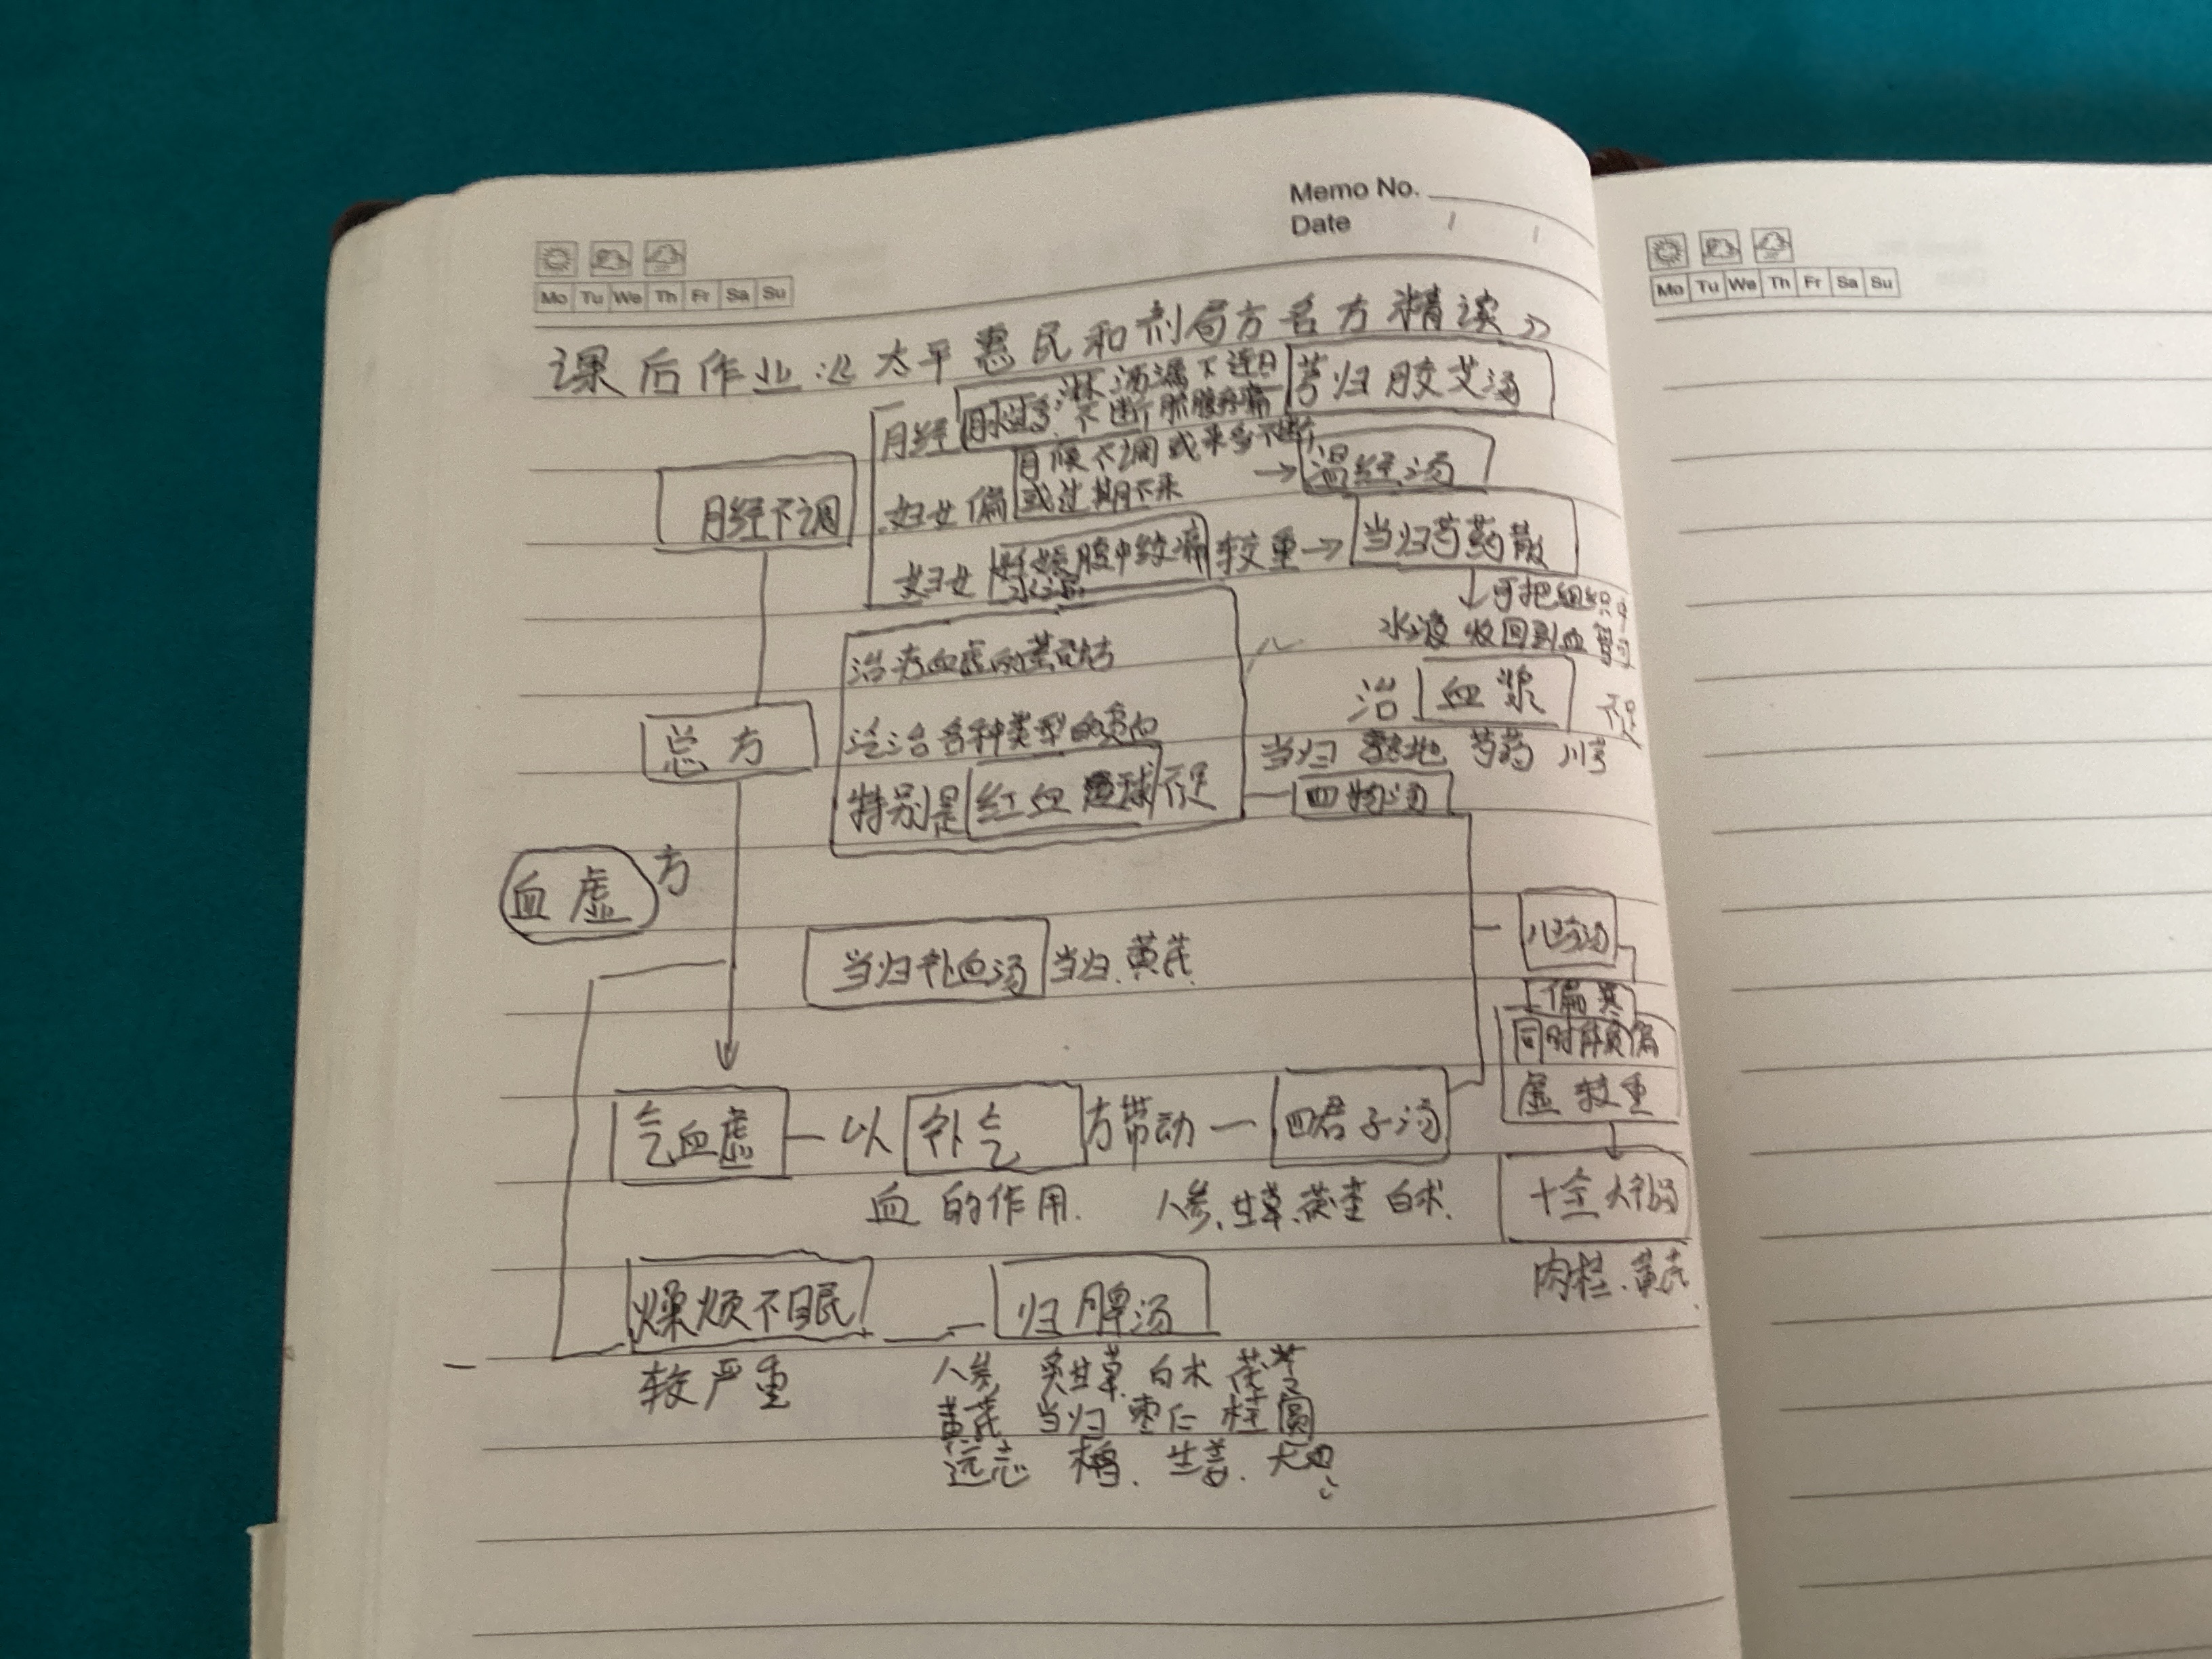 Memo No.
Date / /
Mo Tu We Th Fr Sa Su
Mo Tu We Th Fr Sa Su
课后作业《太平惠民和剂局方名方精读》
月经 月水过多 淋沥漏下连日
不断 脐腹疼痛
芎归胶艾汤
月经不调
妇女偏
月候不调或来多不断
或过期不来
→ 温经汤
妇女 妊娠腹中绞痛 较重 → 当归芍药散
↓可把组织中
水液收回到血管
治 血浆 不足
治疗血虚的基础方
泛治各种类型的贫血
特别是 红血球 不足
总方
当归 熟地 芍药 川芎
四物汤
血虚 方
当归补血汤 当归.黄芪
八珍汤
偏寒
同时体质偏
虚较重
十全大补汤
肉桂.黄芪.
气血虚 — 以 补气 方带动 — 四君子汤
血的作用. 人参.甘草.茯苓 白术.
燥烦不眠 — 归脾汤
较严重
人参 炙甘草 白术 茯苓
黄芪 当归 枣仁 桂圆
远志 生姜.